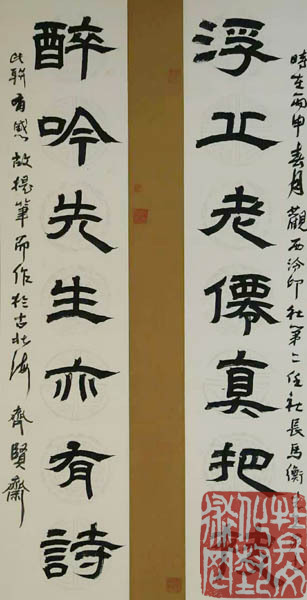 時在丙申春月觀西泠印社第二任社長馬衡
浮丘老僊真把
醉吟先生亦有詩
此联有感故提筆而作於古北海齊賢齋